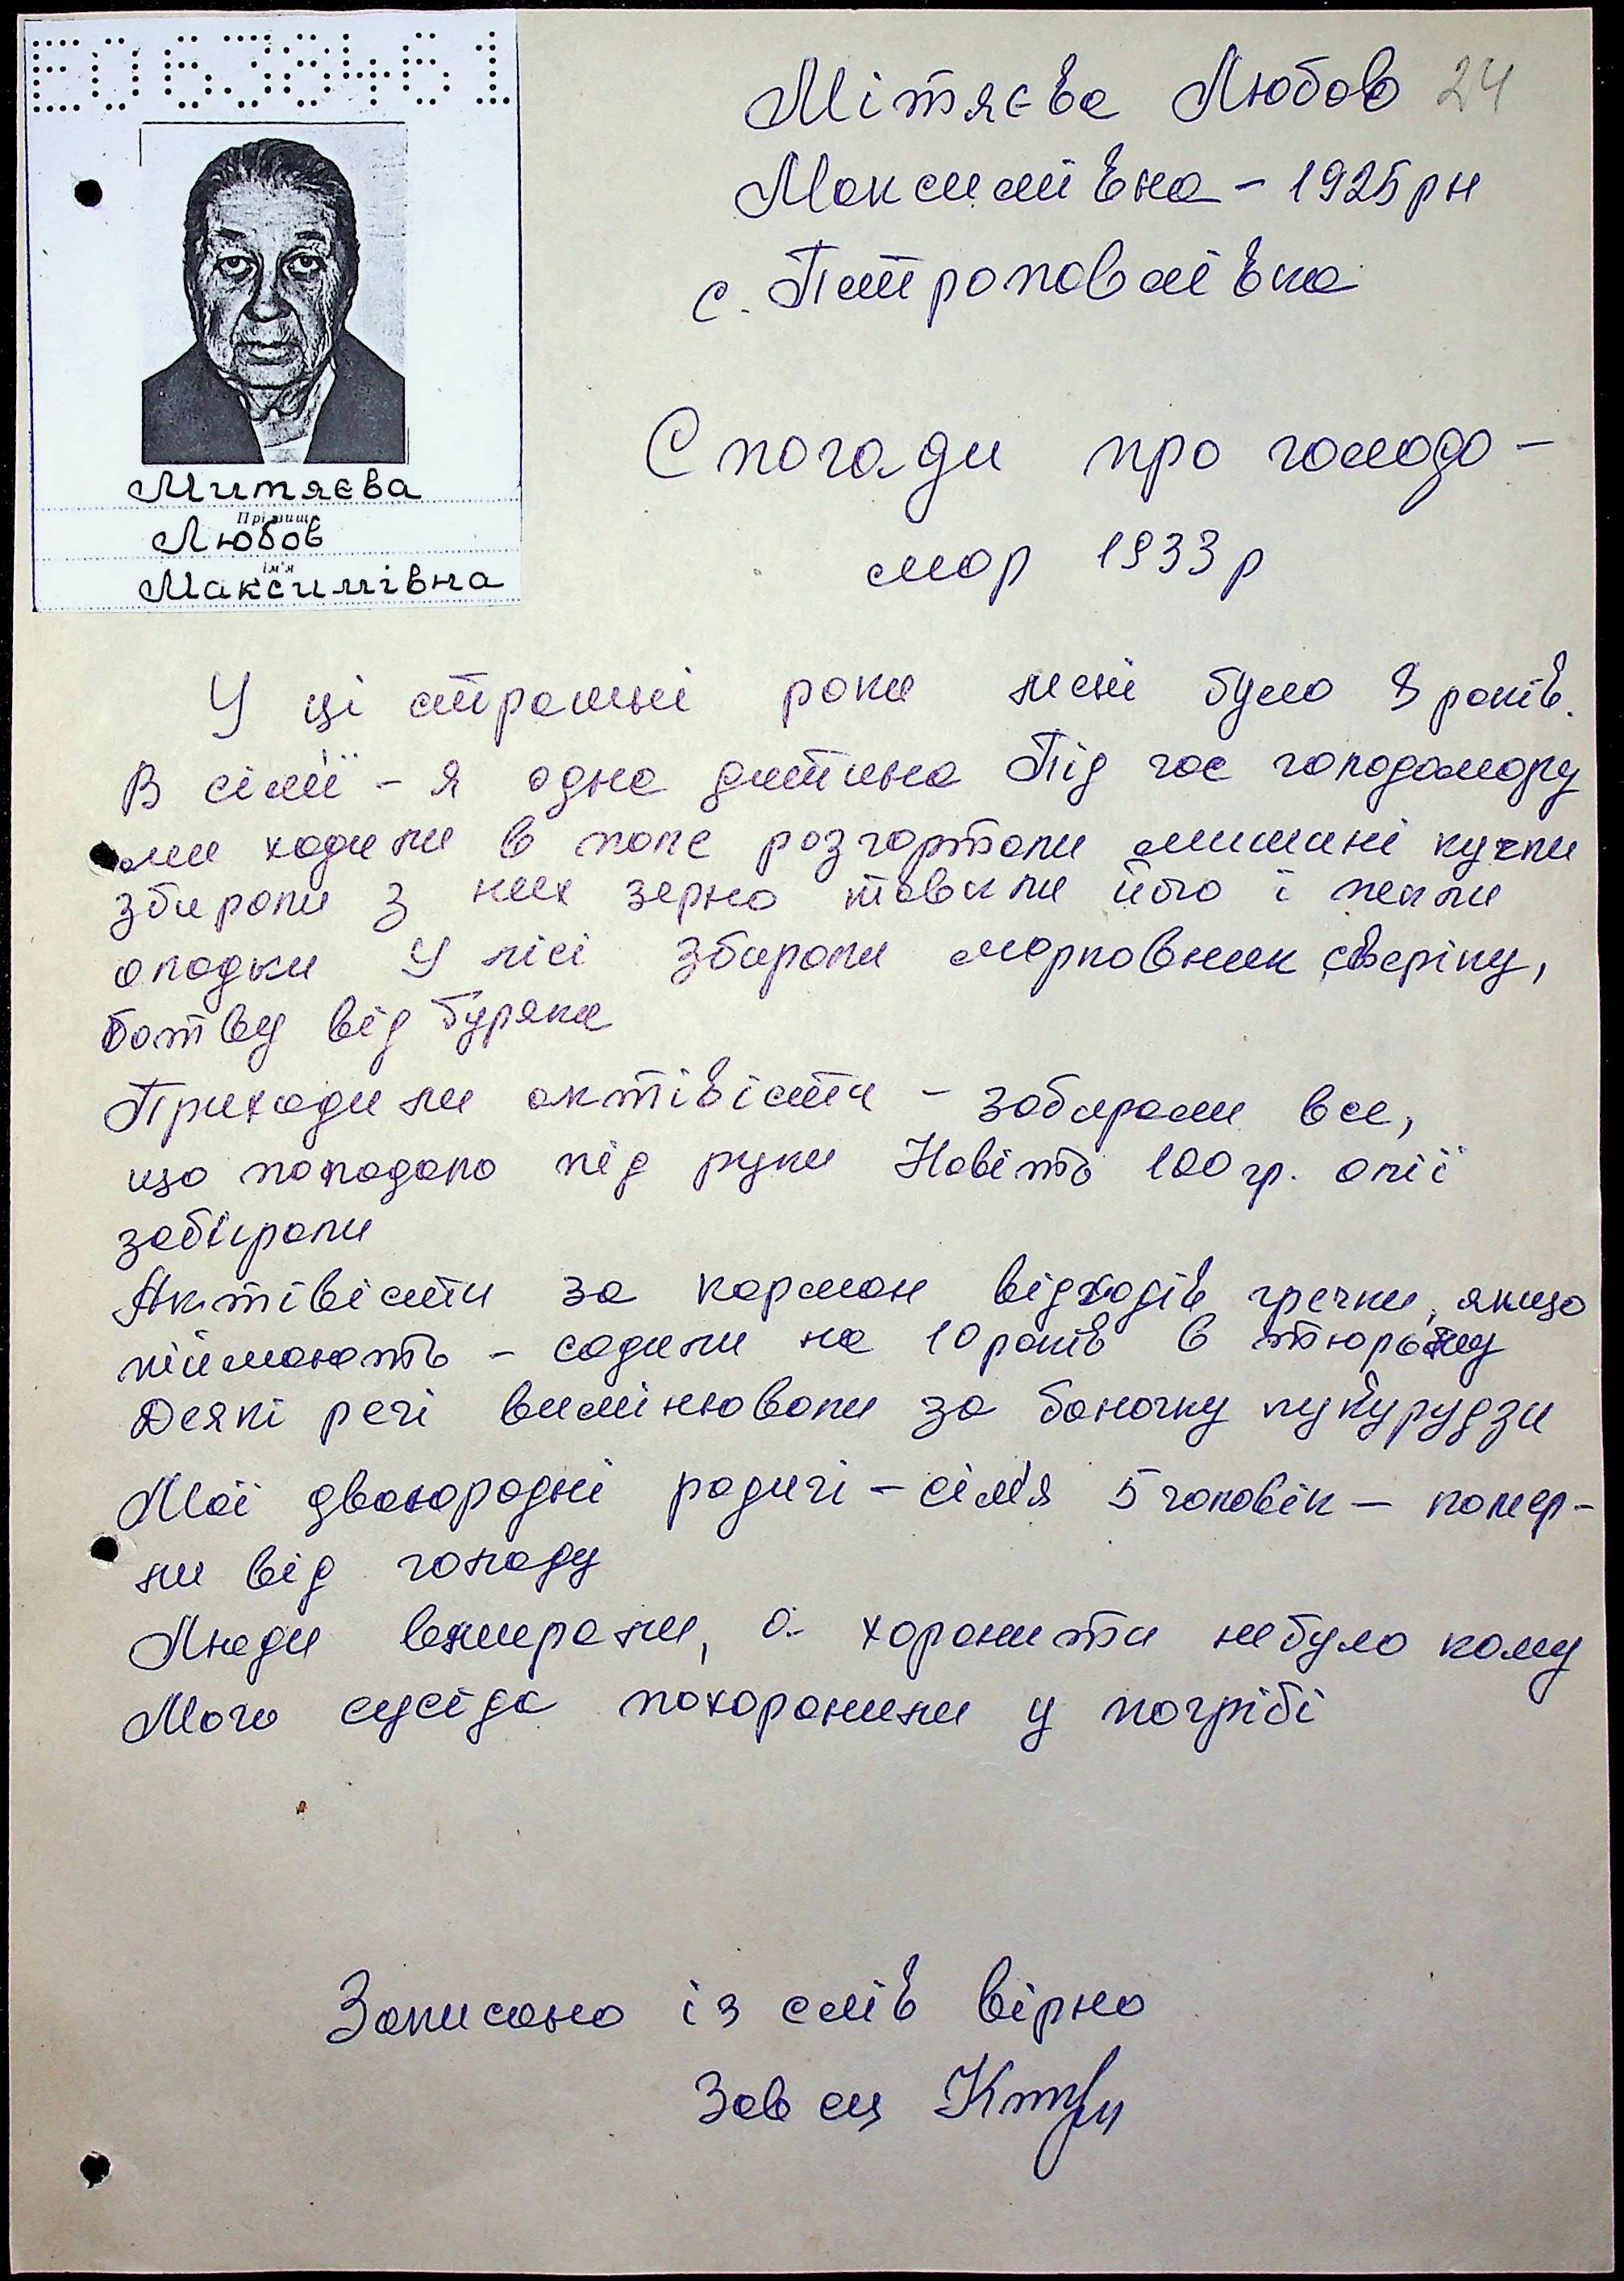 ЕО638461
Митяєва
Прізвище
Любов
ім'я
Максимівна
Мітяєва Любов 24
Максимівна - 1925 рн
с. Петропавлівка
Спогади про голодо-
мор 1933 р
У ці страшні роки мені було 8 років.
В сім'ї - я одна дитина Під час голодомору
ми ходили в поле розгортали мишині кучки
збирали з них зерно товкли його і пекли
оладки У лісі збирали морковник, свєріпу,
ботву від буряка
Приходили актівісти - забирали все,
що попадало під руки Навіть 100 гр. олії
забирали
Актівісти за карман відходів гречки, якщо
піймають - садили на 10 років в тюрьму
Деякі речі вимінювали за баночку кукурудзи
Мої двоюродні родичі - сім'я 5 чоловік - помер-
ли від голоду
Люди вмирали, а хоронити небуло кому
Мого сусіда похоронили у погрібі
Записано із слів вірно
Зав